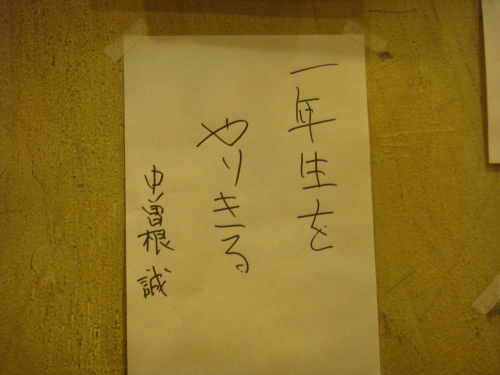 一年生を
やりきる。
中曽根誠